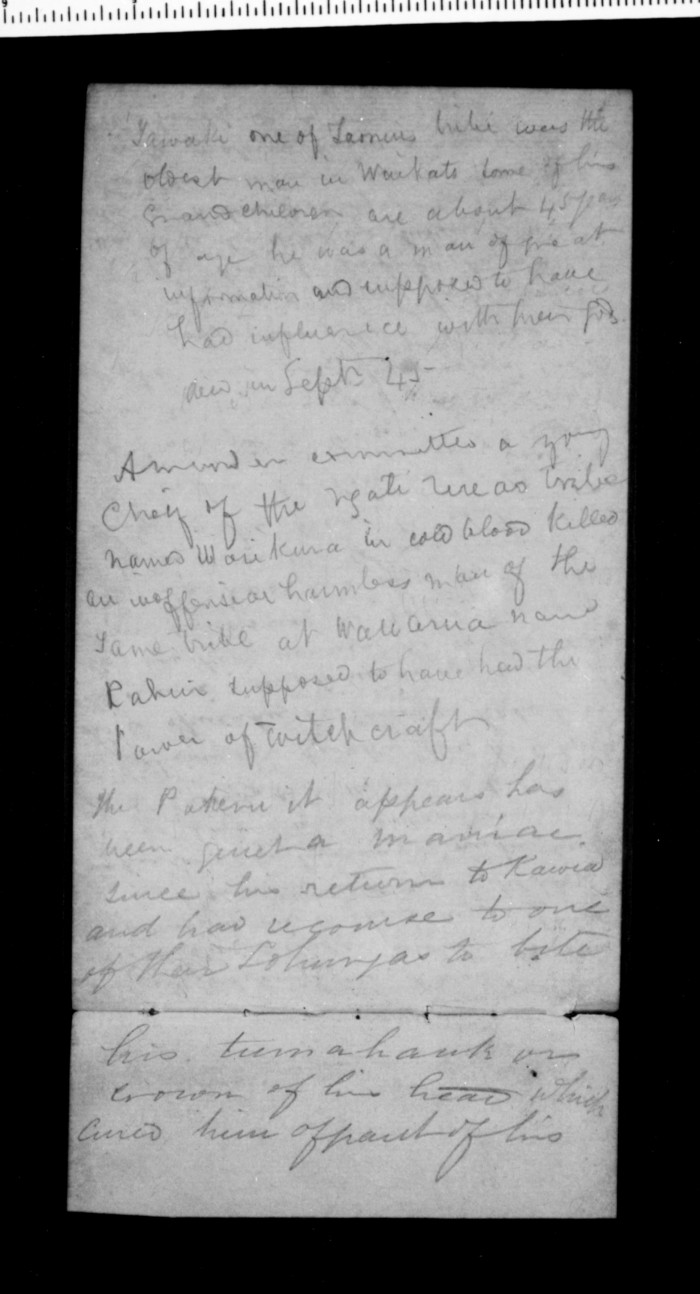 Tawaki one of Taonuis tribe was the
oldest man in Waikato some of his
Grandchildren are about 45 years
of age he was a man of great
information and supposed to have
had influence with their gods.
died in Sept 45
A murder committed a young
Cheif of the ngati tribe
named in cold blood killed
an harmless man of the
same tribe at name
supposed to have had the
Power of witch craft
the it appears has
been a maniac
since his return to Kawia
and had recourse to one
of their Tohungas to bite
his tumahauk or
crown of his head which
cured him of part of his